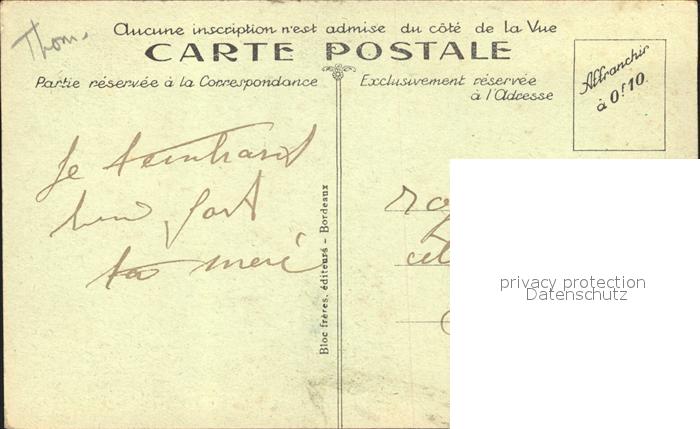 Thom.
Aucune inscription n'est admise du côté de la Vue
CARTE POSTALE
Partie réservée à la Correspondance
Exclusivement réservée
à l'Adresse
Affranchir
à 0f10.
Je
bien fort
ta mere
Bloc frères, éditeurs - Bordeaux
privacy protection
Datenschutz